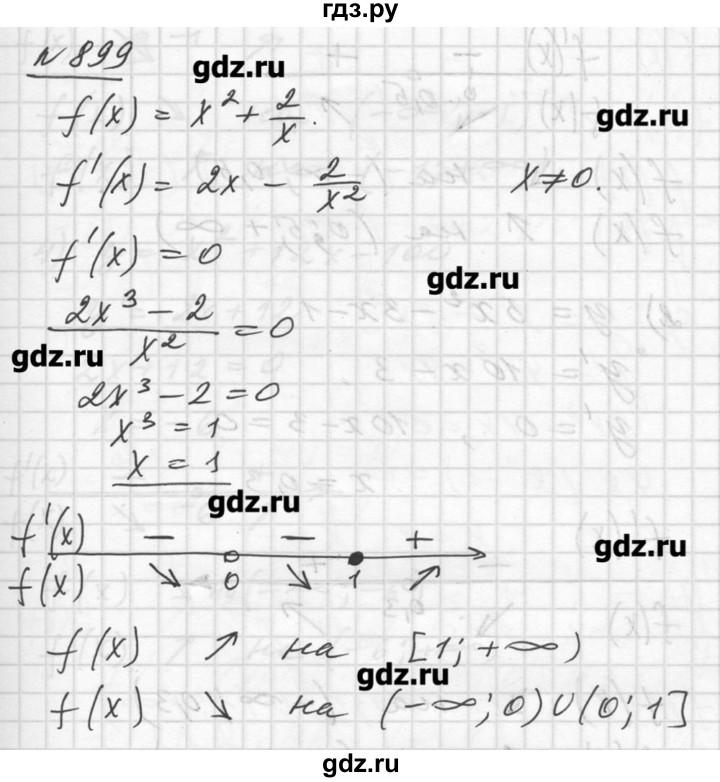 гдз.ру
№ 899
gdz.ru
f(x) = x² + 2/x.
gdz.ru
f'(x) = 2x − 2/x² x ≠ 0.
f'(x) = 0
gdz.ru
(2x³ − 2)/x² = 0
gdz.ru
2x³ − 2 = 0
x³ = 1
x = 1
gdz.ru
f'(x) − − + 
gdz.ru
f(x) ↘ 0 ↘ 1 ↗
f(x) ↗ на [1; +∞)
gdz.ru
f(x) ↘ на (−∞; 0) ∪ (0; 1]
gdz.ru